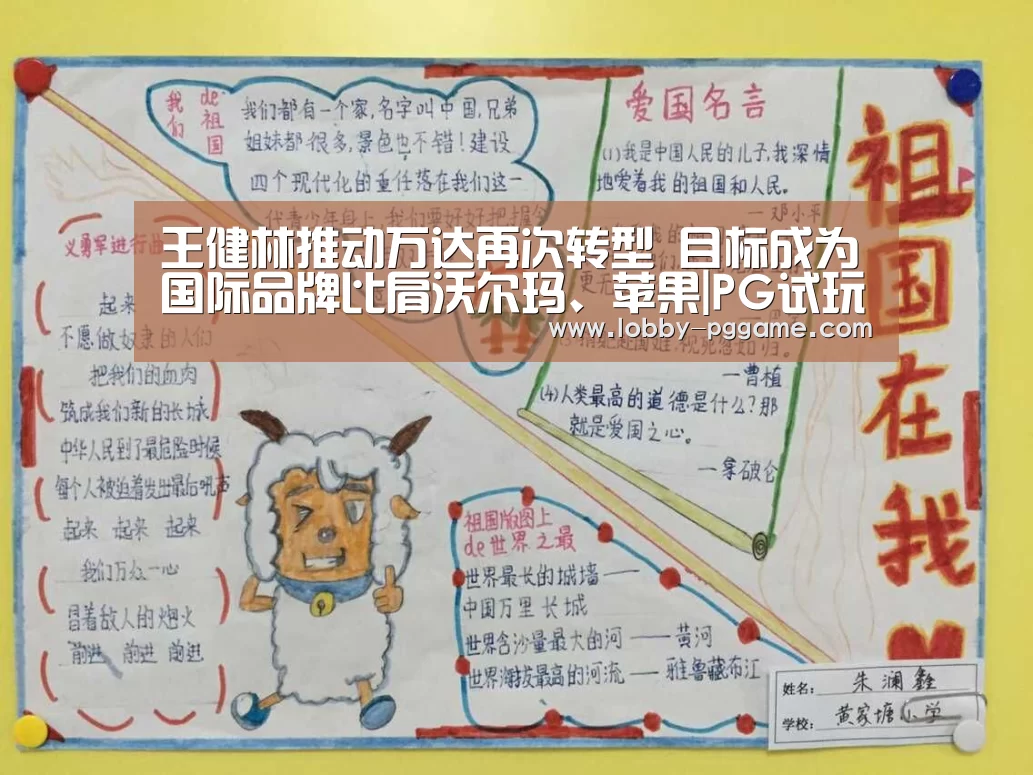 我们
de祖国
我们都有一个家,名字叫中国,兄弟
姐妹都很多,景色也不错!建设
四个现代化的重任落在我们这一
代青少年身上,我们要好好把握今
爱国名言
(1)我是中国人民的儿子,我深情
地爱着我的祖国和人民。
—邓小平
王健林推动万达再次转型 目标成为
国际品牌比肩沃尔玛、苹果|PG试玩
www.lobby-pggame.com
—曹植
(4)人类最高的道德是什么?那
就是爱国之心。
—拿破仑
义勇军进行曲
起来
不愿做奴隶的人们
把我们的血肉
筑成我们新的长城
中华人民到了最危险时候
每个人被迫着发出最后吼声
起来 起来 起来
我们万众一心
冒着敌人的炮火
前进 前进 前进
祖国版图上
de世界之最
世界最长的城墙——
中国万里长城
世界含沙量最大的河——黄河
世界海拔最高的河流——雅鲁藏布江
祖国在我
姓名: 朱澜鑫
学校: 黄家塘小学